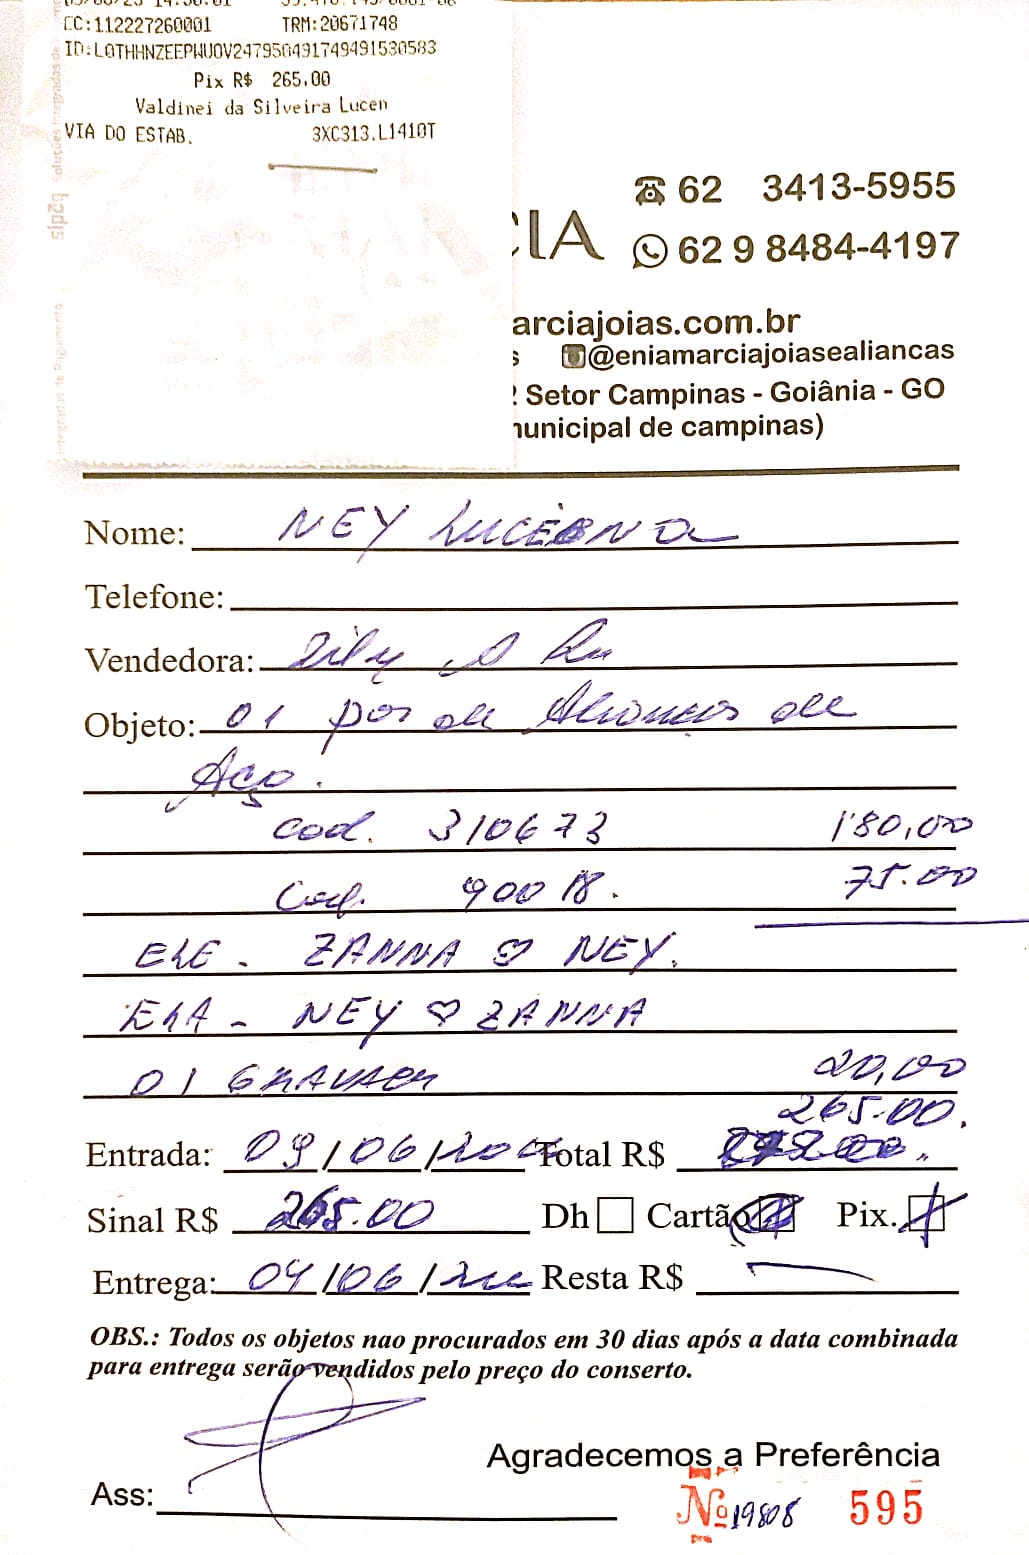 CC:112227260001 TRM:20671748
ID:LOTHHNZEEPWUOV247950491749491530583
Pix R$ 265.00
Valdinei da Silveira Lucen
VIA DO ESTAB. 3XC313.L1410T
sipag Soluções Integradas de
Integradas de Pagamento
CIA
62 3413-5955
62 9 8484-4197
arciajoias.com.br
s @eniamarciajoiasealiancas
2 Setor Campinas - Goiânia - GO
municipal de campinas)
Nome: NEY LUCENA
Telefone:
Vendedora:
Objeto: 01 par de Alianças de
Aço.
cod. 310673 180,00
Cod. 90018. 75.00
ELE - ZANNA ♡ NEY.
ELA - NEY ♡ ZANNA
01 GRAVAÇÃO 20,00
265.00.
Entrada: 09/06/ Total R$
Sinal R$ 265.00 Dh Cartão Pix.
Entrega: 04/06/ Resta R$
OBS.: Todos os objetos nao procurados em 30 dias após a data combinada
para entrega serão vendidos pelo preço do conserto.
Agradecemos a Preferência
Ass:
Nº 19808 595